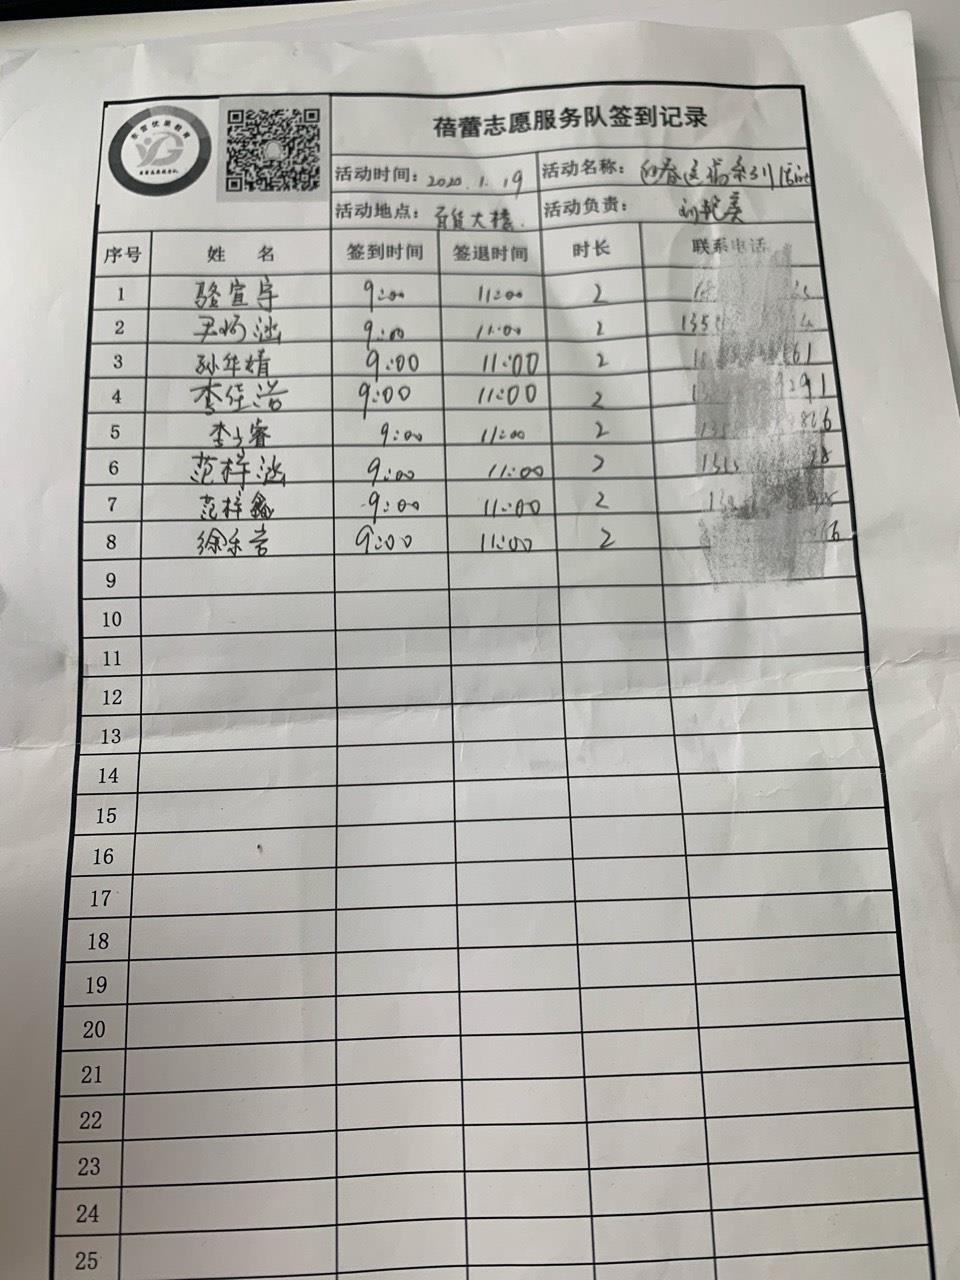 蓓蕾志愿服务队签到记录
活动时间: 2020.1.19 活动名称:
活动地点: 百货大楼. 活动负责:
序号 姓 名 签到时间 签退时间 时长 联系电话
1 骆宣宇 9:00 11:00 2
2 9:00 11:00 2
3 孙华婧 9:00 11:00 2
4 李佳诺 9:00 11:00 2
5 李子睿 9:00 11:00 2
6 范梓涵 9:00 11:00 2
7 范梓鑫 9:00 11:00 2
8 徐乐岩 9:00 11:00 2
9
10
11
12
13
14
15
16
17
18
19
20
21
22
23
24
25